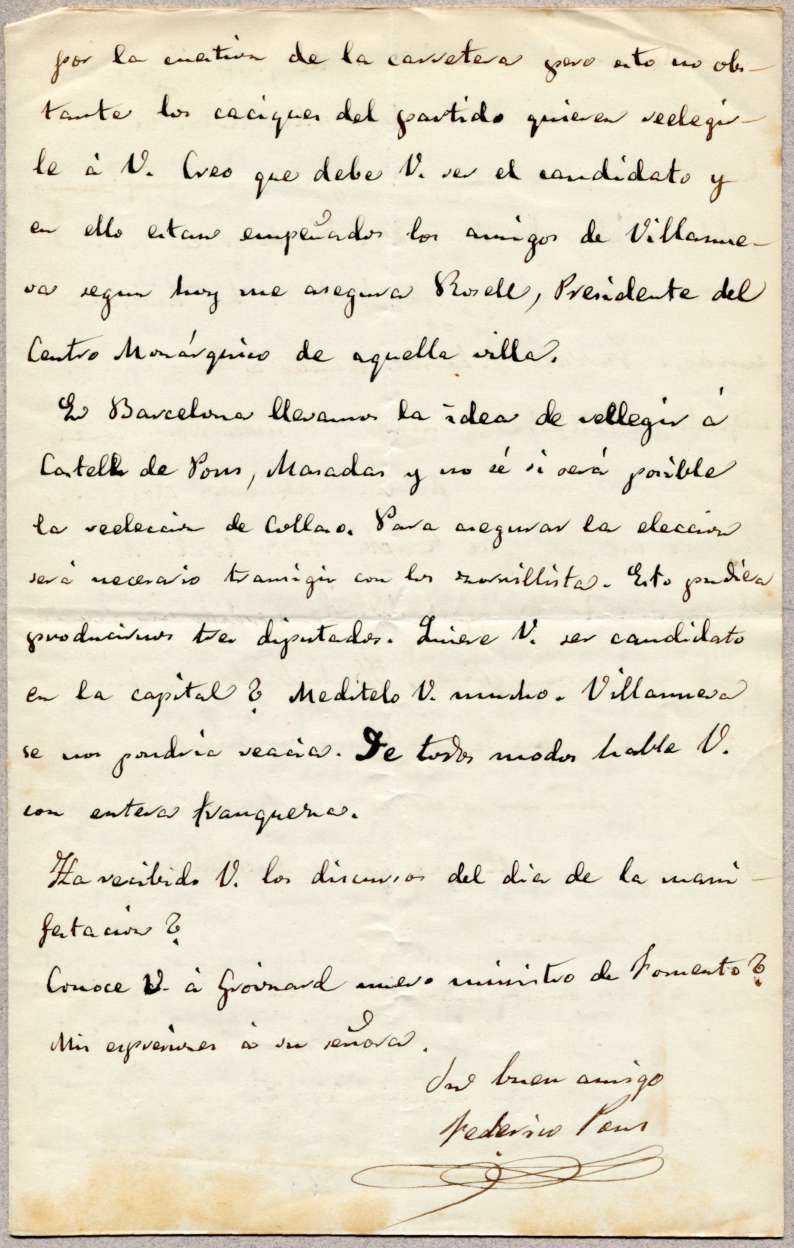 por la cuestion de la carretera pero esto no obs-
tante los caciques del partido quieren reelegir-
le á V. Creo que debe V. ser el candidato y
en ello estan empeñados los amigos de Villanue-
va segun hoy me asegura Rosell, Presidente del
Centro Monárquico de aquella villa.
En Barcelona llevamos la idea de rellegir á
Castell de Pons, Masadas y no sé si será posible
la reeleccion de Collaso. Para asegurar la eleccion
será necesario transigir con los zorrillista. Esto pudiera
producirnos tres diputados. Quiere V. ser candidato
en la capital? Meditelo V. mucho. Villanueva
se nos pondria reacia. De todos modos hable V.
con entera franqueza.
Ha recibido V. los discursos del dia de la mani-
festacion?
Conoce V. á Groinard nuevo ministro de Fomento?
Mis espresiones á su señora.
Su buen amigo
Federico Pons